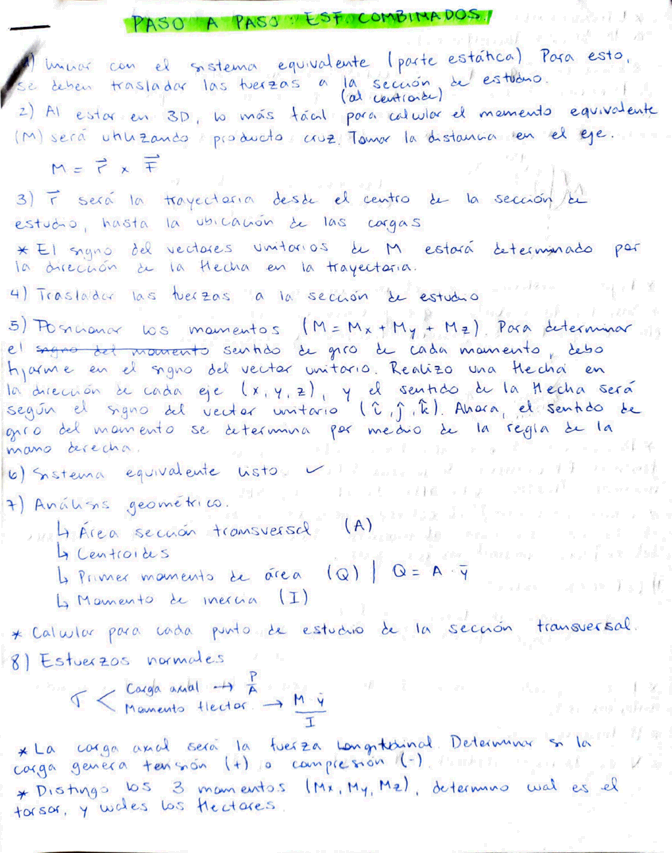 PASO A PASO: ESF. COMBINADOS.
1) Iniciar con el sistema equivalente (parte estática). Para esto,
se deben trasladar las fuerzas a la sección de estudio.
(al centroide)
2) Al estar en 3D, lo más fácil para calcular el momento equivalente
(M) será utilizando producto cruz. Tomar la distancia en el eje.
M = r⃗ x F⃗
3) r⃗ será la trayectoria desde el centro de la sección de
estudio, hasta la ubicación de las cargas
* El signo del vectores unitarios de M estará determinado por
la dirección de la flecha en la trayectoria.
4) Trasladar las fuerzas a la sección de estudio
5) Posicionar los momentos (M = Mx + My + Mz). Para determinar
el signo del momento sentido de giro de cada momento, debo
fijarme en el signo del vector unitario. Realizo una flecha en
la dirección de cada eje (x, y, z), y el sentido de la flecha será
según el signo del vector unitario (î, ĵ, k̂). Ahora, el sentido de
giro del momento se determina por medio de la regla de la
mano derecha.
6) Sistema equivalente listo ✓
7) Análisis geométrico.
↳ Área sección transversal (A)
↳ Centroides
↳ Primer momento de área (Q) | Q = A · ȳ
↳ Momento de inercia (I)
* Calcular para cada punto de estudio de la sección transversal.
8) Esfuerzos normales
σ < Carga axial → P/A
Momento flector → M ȳ / I
* La carga axial será la fuerza longitudinal. Determinar si la
carga genera tensión (+) o compresión (-)
* Distingo los 3 momentos (Mx, My, Mz), determino cual es el
torsor, y cuales los flectores.